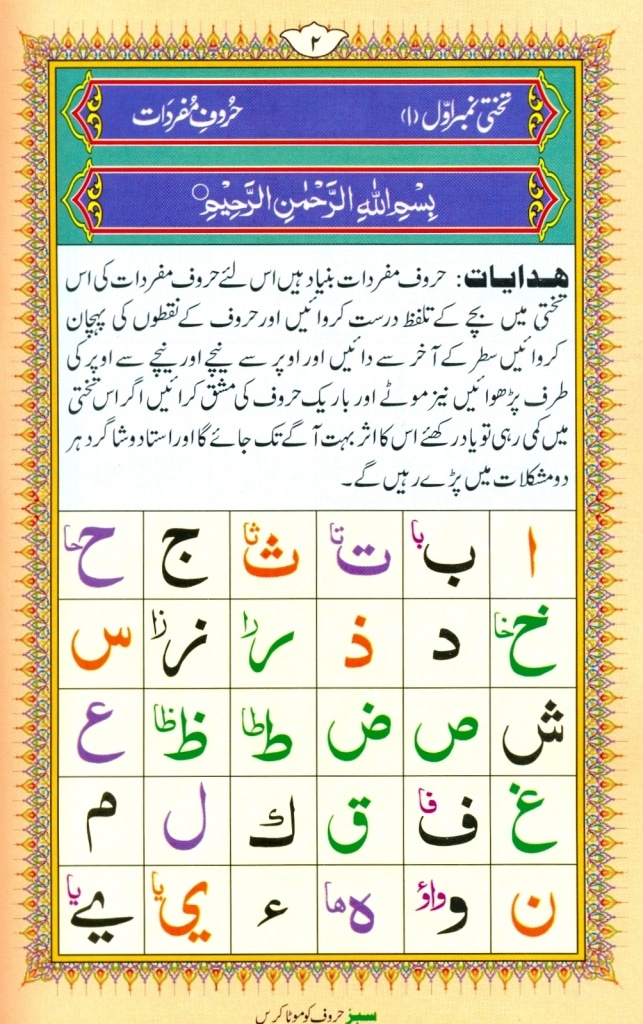 ۲
تختی نمبر اوّل (۱) حُروفِ مُفرَدَات
بِسْمِ اللّٰهِ الرَّحْمٰنِ الرَّحِيْمِ
هدایات: حروف مفردات بنیاد ہیں اس لئے حروف مفردات کی اس
تختی میں بچے کے تلفظ درست کروائیں اور حروف کے نقطوں کی پہچان
کروائیں سطر کے آخر سے دائیں اور اوپر سے نیچے اور نیچے سے اوپر کی
طرف پڑھوائیں نیز موٹے اور باریک حروف کی مشق کرائیں اگر اس تختی
میں کمی رہی تو یاد رکھئے اس کا اثر بہت آگے تک جائے گا اور استاد و شاگرد ہر
دو مشکلات میں پڑے رہیں گے۔
ا ب با ت تا ث ثا ج ح حا
خ خا د ذ ر را ز زا س
ش ص ض ط طا ظ ظا ع
غ ف فا ق ك ل م
ن و واؤ ہ ھا ء ي يا ے يا
سبز حروف کو موٹا کریں